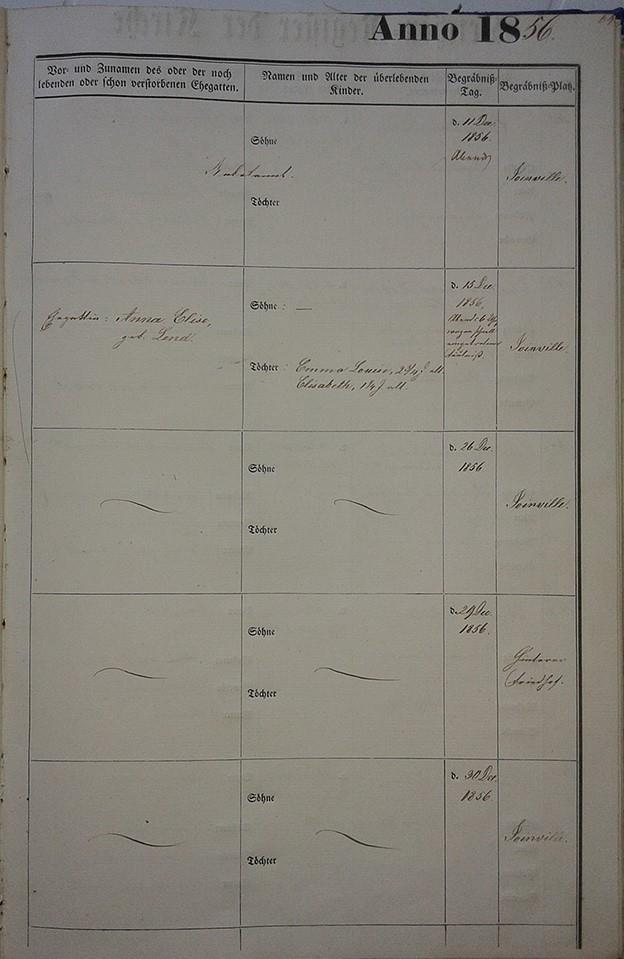 Anno 1856.
Vor- und Zunamen des oder der noch
lebenden oder schon verstorbenen Ehegatten.
Namen und Alter der überlebenden
Kinder.
Begräbniß-
Tag.
Begräbniß-Platz.
Söhne
Töchter
Unbekannt.
d. 11 Dec.
1856.
Abends
Joinville.
Ehegattin: Anna Elise,
geb. Lend.
Söhne: —
Töchter: Emma Louise, 2¾ J. alt.
Elisabeth, 1¼ J. alt.
d. 15 Dec.
1856.
Abends 6 Uhr
wegen schnell
eingetretener
Fäulniß.
Joinville.
Söhne
Töchter
d. 26 Dec.
1856
Joinville.
Söhne
Töchter
d. 29 Dec.
1856.
Hinterer
Friedhof.
Söhne
Töchter
d. 30 Dec.
1856.
Joinville.